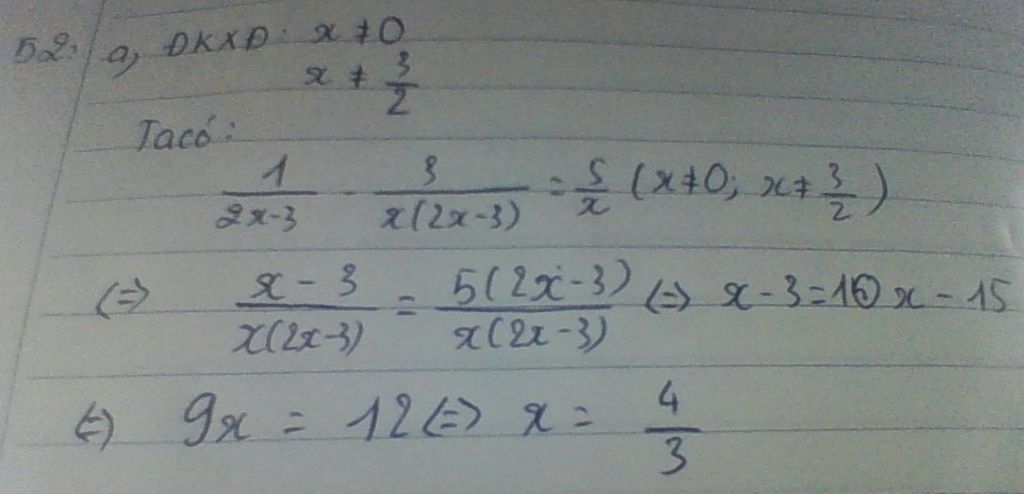 52: a, ĐKXĐ: x ≠ 0
x ≠ 3/2
Ta có:
1/(2x-3) - 3/(x(2x-3)) = 5/x (x≠0; x≠3/2)
(=) (x-3)/(x(2x-3)) = 5(2x-3)/(x(2x-3)) (=) x-3=10x-15
(=) 9x = 12 (=) x = 4/3